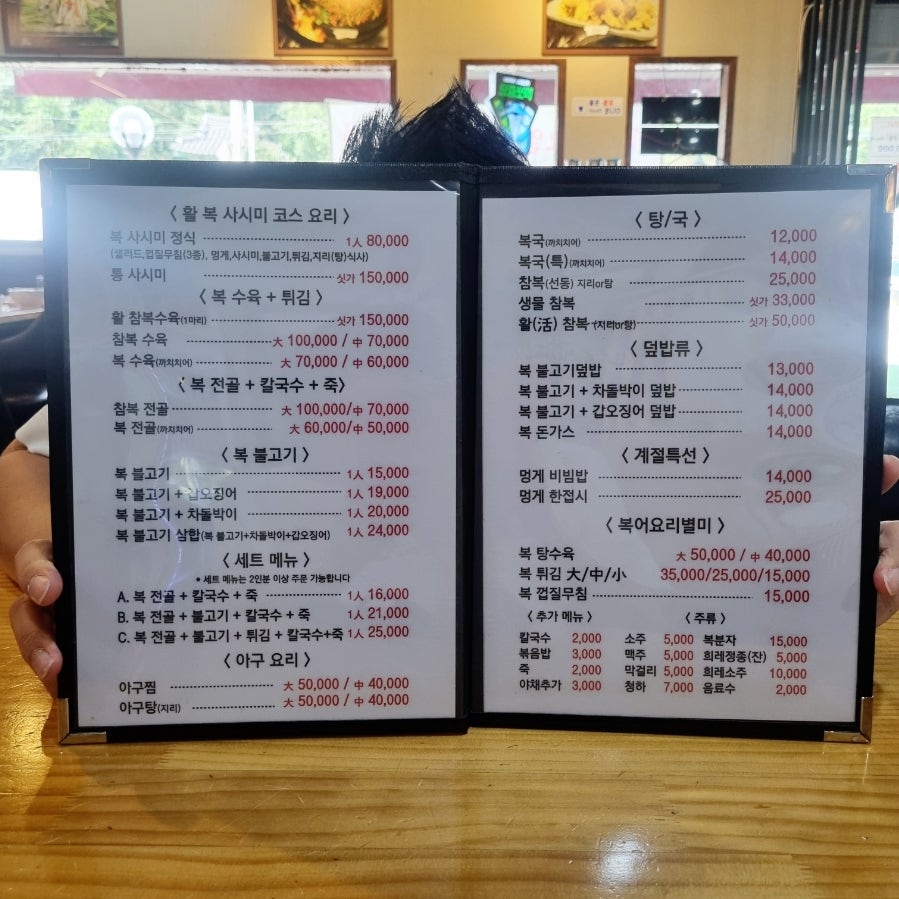 〈 활 복 사시미 코스 요리 〉
복 사시미 정식 1人 80,000
(샐러드,껍질무침(3종), 멍게,사시미,불고기,튀김,지리(탕)식사)
통 사시미 싯가 150,000
〈 복 수육 + 튀김 〉
활 참복수육(1마리) 싯가 150,000
참복 수육 大 100,000 / 中 70,000
복 수육(까치치어) 大 70,000 / 中 60,000
〈 복 전골 + 칼국수 + 죽〉
참복 전골 大 100,000/ 中 70,000
복 전골(까치치어) 大 60,000/ 中 50,000
〈 복 불고기 〉
복 불고기 1人 15,000
복 불고기 + 갑오징어 1人 19,000
복 불고기 + 차돌박이 1人 20,000
복 불고기 삼합(복 불고기+차돌박이+갑오징어) 1人 24,000
〈 세트 메뉴 〉
• 세트 메뉴는 2인분 이상 주문 가능합니다
A. 복 전골 + 칼국수 + 죽 1人 16,000
B. 복 전골 + 불고기 + 칼국수 + 죽 1人 21,000
C. 복 전골 + 불고기 + 튀김 + 칼국수+죽 1人 25,000
〈 아구 요리 〉
아구찜 大 50,000 / 中 40,000
아구탕(지리) 大 50,000 / 中 40,000
〈 탕/국 〉
복국(까치치어) 12,000
복국(특)(까치치어) 14,000
참복(선동) 지리or탕 25,000
생물 참복 싯가 33,000
활(活) 참복 (지리or탕) 싯가 50,000
〈 덮밥류 〉
복 불고기덮밥 13,000
복 불고기 + 차돌박이 덮밥 14,000
복 불고기 + 갑오징어 덮밥 14,000
복 돈가스 14,000
〈 계절특선 〉
멍게 비빔밥 14,000
멍게 한접시 25,000
〈 복어요리별미 〉
복 탕수육 大 50,000 / 中 40,000
복 튀김 大/中/小 35,000/25,000/15,000
복 껍질무침 15,000
〈 추가 메뉴 〉 〈 주류 〉
칼국수 2,000 소주 5,000 복분자 15,000
볶음밥 3,000 맥주 5,000 희레정종(잔) 5,000
죽 2,000 막걸리 5,000 희레소주 10,000
야채추가 3,000 청하 7,000 음료수 2,000